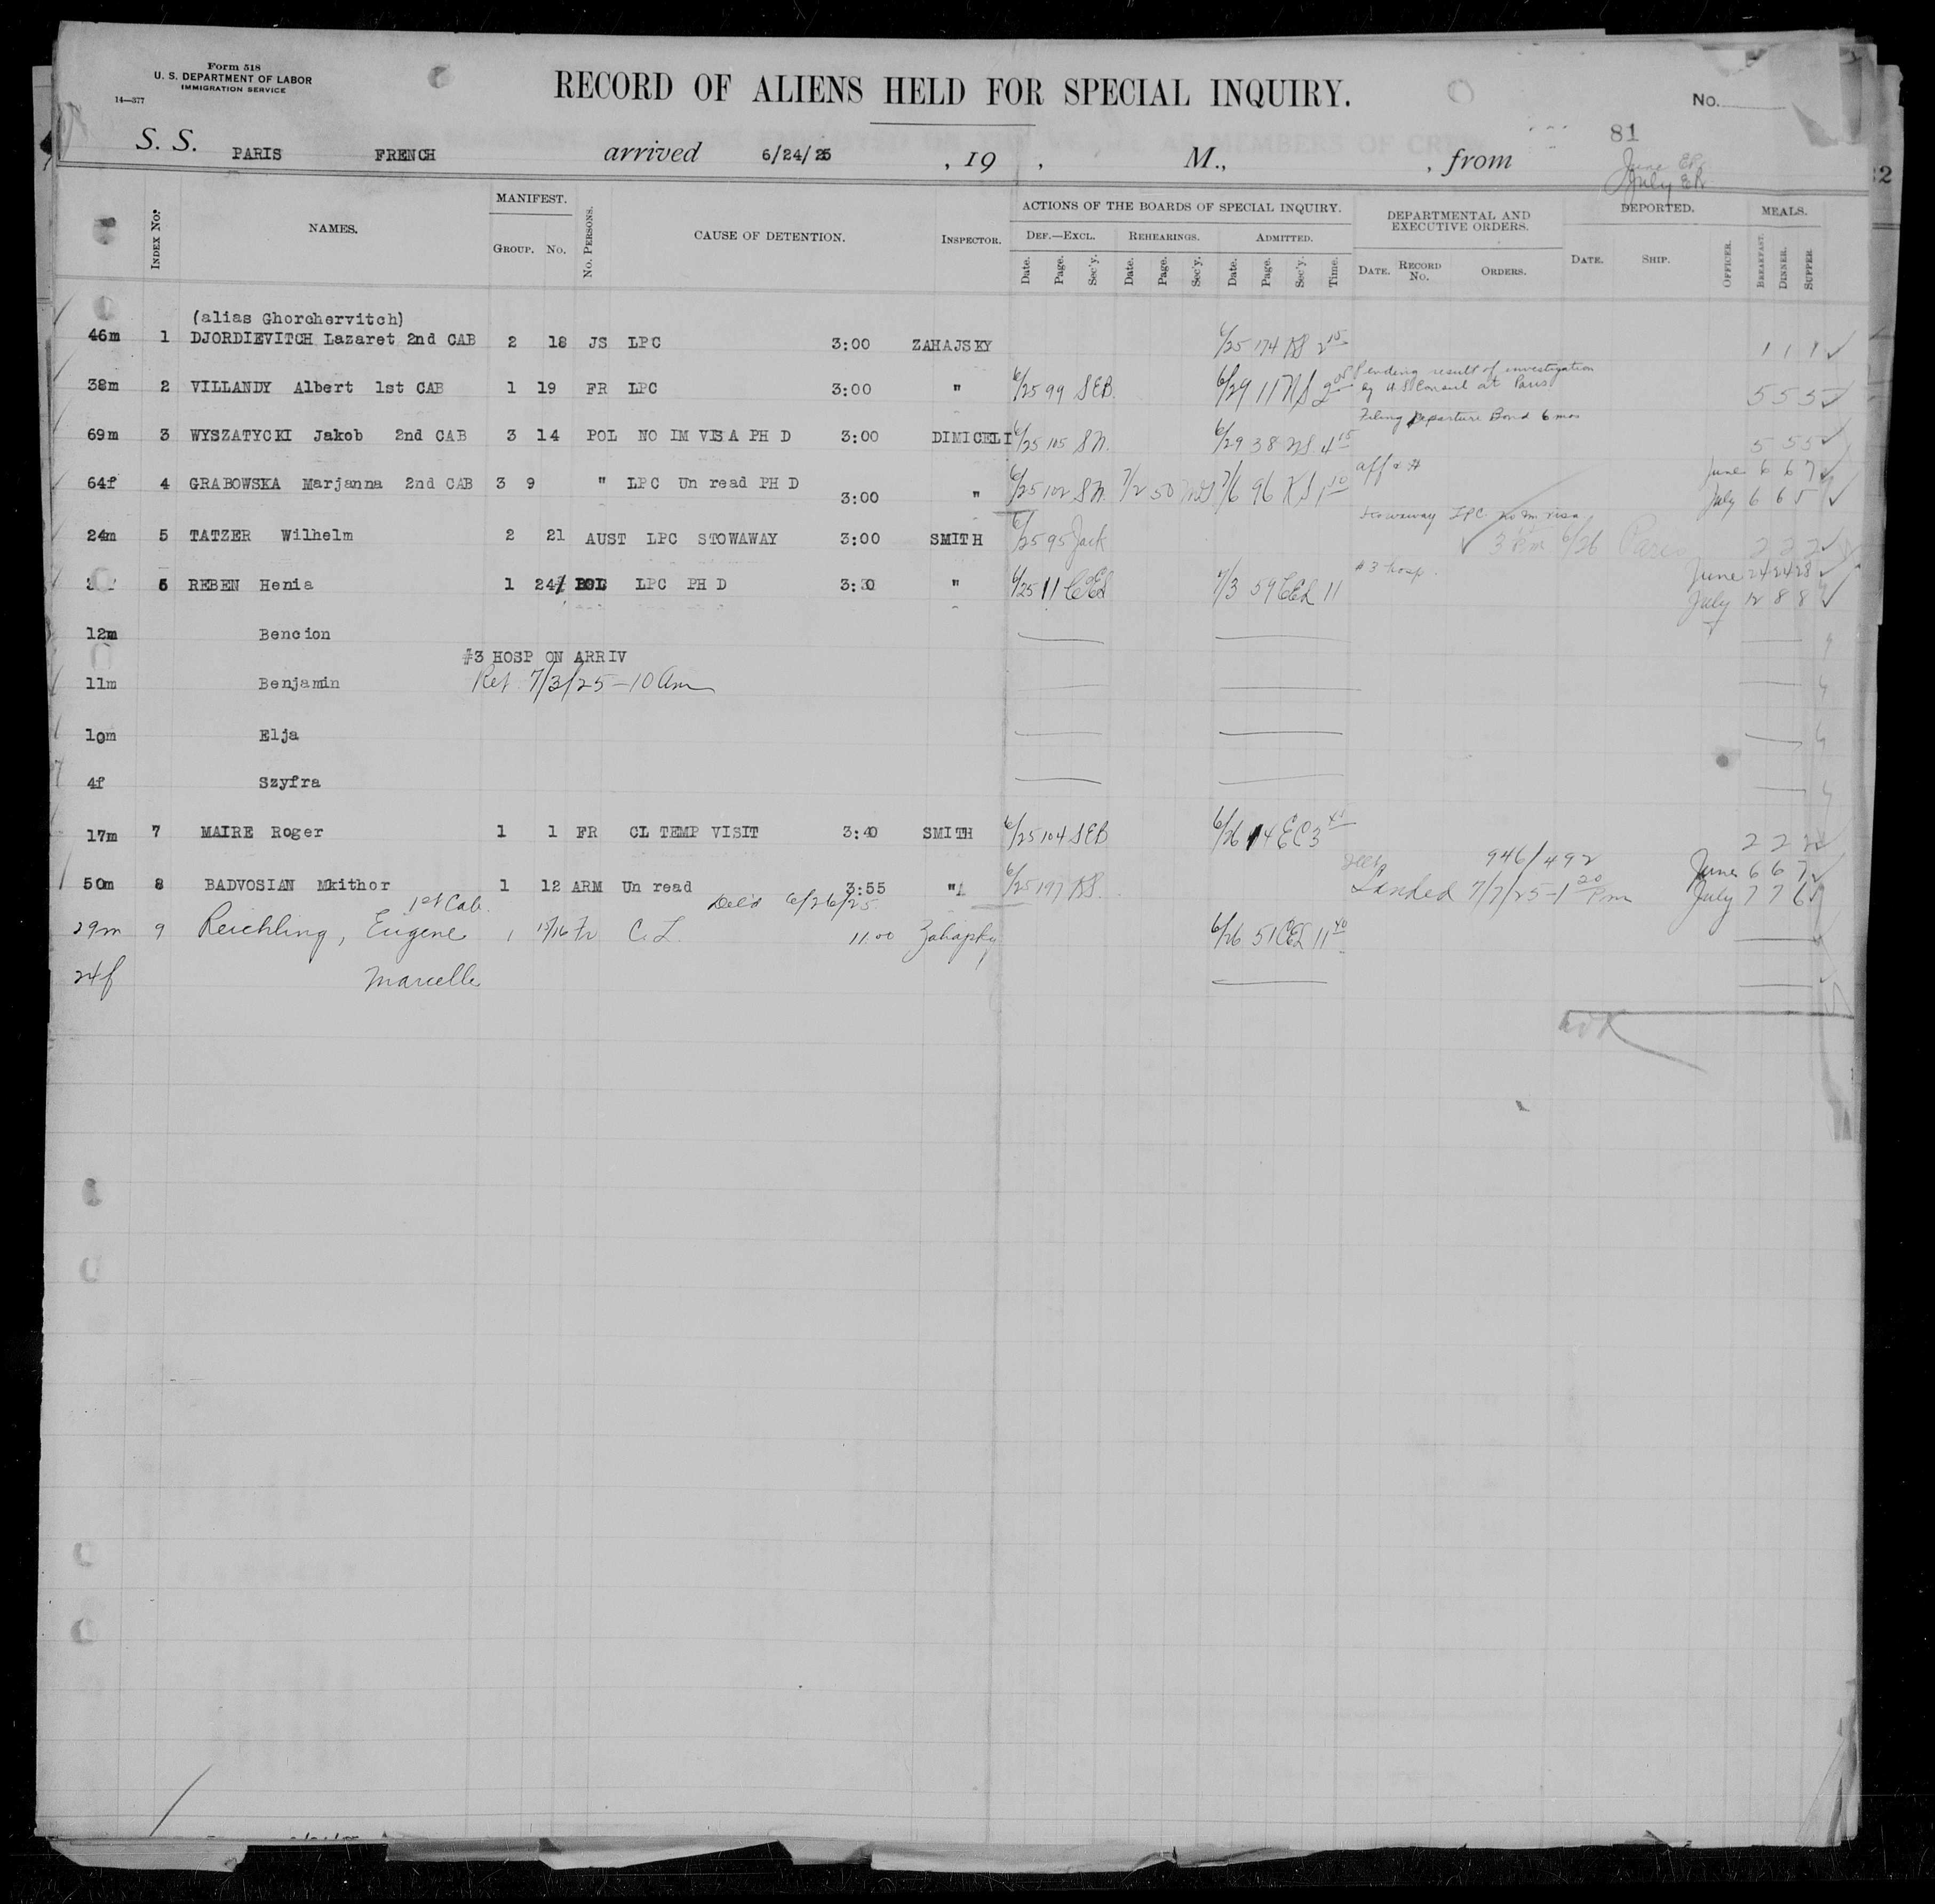 Form 518
U. S. DEPARTMENT OF LABOR
IMMIGRATION SERVICE
14—377
RECORD OF ALIENS HELD FOR SPECIAL INQUIRY.
No.
81
S. S. PARIS FRENCH arrived 6/24/25 , 19 , M., , from
June ER
July ER
32
INDEX No. NAMES. MANIFEST. GROUP. No. No. PERSONS. CAUSE OF DETENTION. INSPECTOR. ACTIONS OF THE BOARDS OF SPECIAL INQUIRY. DEPARTMENTAL AND EXECUTIVE ORDERS. DEPORTED. MEALS.
DEF.—EXCL. REHEARINGS. ADMITTED.
Date. Page. Sec'y. Date. Page. Sec'y. Date. Page. Sec'y. Time. DATE. RECORD No. ORDERS. DATE. SHIP. OFFICER. BREAKFAST. DINNER. SUPPER
(alias Ghorchervitch)
46m 1 DJORDIEVITCH Lazaret 2nd CAB 2 18 JS LPC 3:00 ZAHAJSKY 6/25 174 KS 2 15 1 1 1
38m 2 VILLANDY Albert 1st CAB 1 19 FR LPC 3:00 " 6/25 99 SEB 6/29 11 NS 2 05 Pending result of investigation by U.S Consul at Paris 5 5 5
69m 3 WYSZATYCKI Jakob 2nd CAB 3 14 POL NO IM VISA PH D 3:00 DIMICELI 6/25 105 SN. 6/29 38 NS. 4 15 Filing Departure Bond 6 mos 5 5 5
64f 4 GRABOWSKA Marjanna 2nd CAB 3 9 " LPC Un read PH D 3:00 " 6/25 102 SN. 7/2 50 7/6 96 KS 1 10 aff & # June 6 6 7
July 6 6 5
24m 5 TATZER Wilhelm 2 21 AUST LPC STOWAWAY 3:00 SMITH 6/25 95 Jack Stowaway LPC no im visa
3 Pm 6/26 Paris 2 2 2
6 REBEN Henia 1 24 POL LPC PH D 3:30 " 6/25 11 7/3 59 CEL 11 #3 hosp. June 24 24 28
July 12 8 8
12m Bencion
#3 HOSP ON ARRIV
11m Benjamin Ret 7/3/25 – 10 am
10m Elja
4f Szyfra
17m 7 MAIRE Roger 1 1 FR CL TEMP VISIT 3:40 SMITH 6/25 104 SEB 6/26 14 EC 3 2 2 2
946/492 June 6 6 7
50m 8 BADVOSIAN Mkithor 1 12 ARM Un read 3:55 " 6/25 197 KS. Landed 7/7/25 – 1 20 Pm July 7 7 6
1st Cab. Del'd 6/26/25
29m 9 Reichling, Eugene 1 15/16 Fr C. L. 11.00 6/26 51 CEL 11 40
24f Marcelle